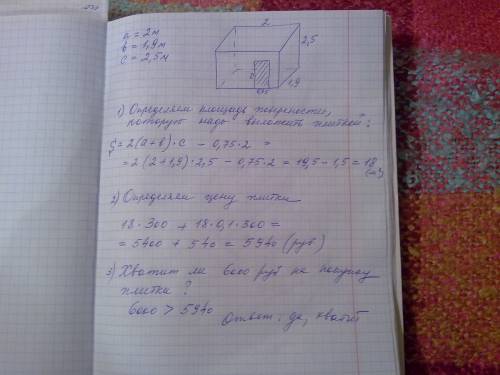 a = 2м
в = 1,9м
c = 2,5м
2
2,5
1,9
2
0,75
1) Определяем площадь поверхности,
которую надо выложить плиткой:
S = 2(a+в)·c − 0,75·2 =
= 2(2+1,9)·2,5 − 0,75·2 = 19,5 − 1,5 = 18
(м²)
2) Определяем цену плитки
18·300 + 18·0,1·300 =
= 5400 + 540 = 5940 (руб)
3) Хватит ли 6000 руб на покупку
плитки?
6000 > 5940
Ответ: да, хватит